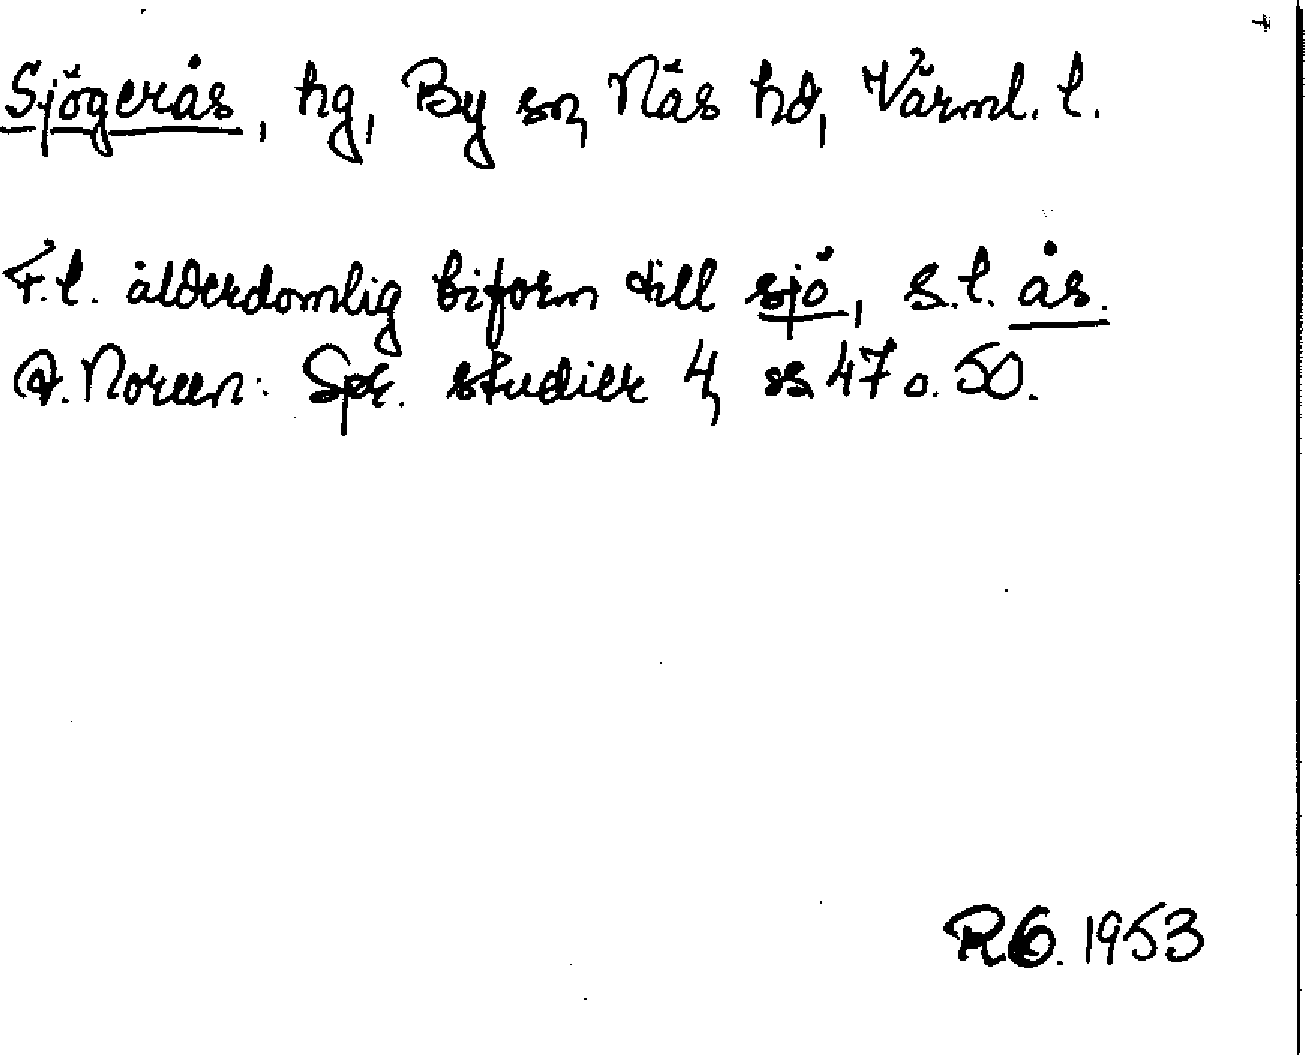 Sjögerås, hg, By sn, Näs hd, Värml. l.
F.l. ålderdomlig biform till sjö, s.l. ås.
A. Noreen: Spr. studier 4, ss. 47 o. 50.
R.G. 1953